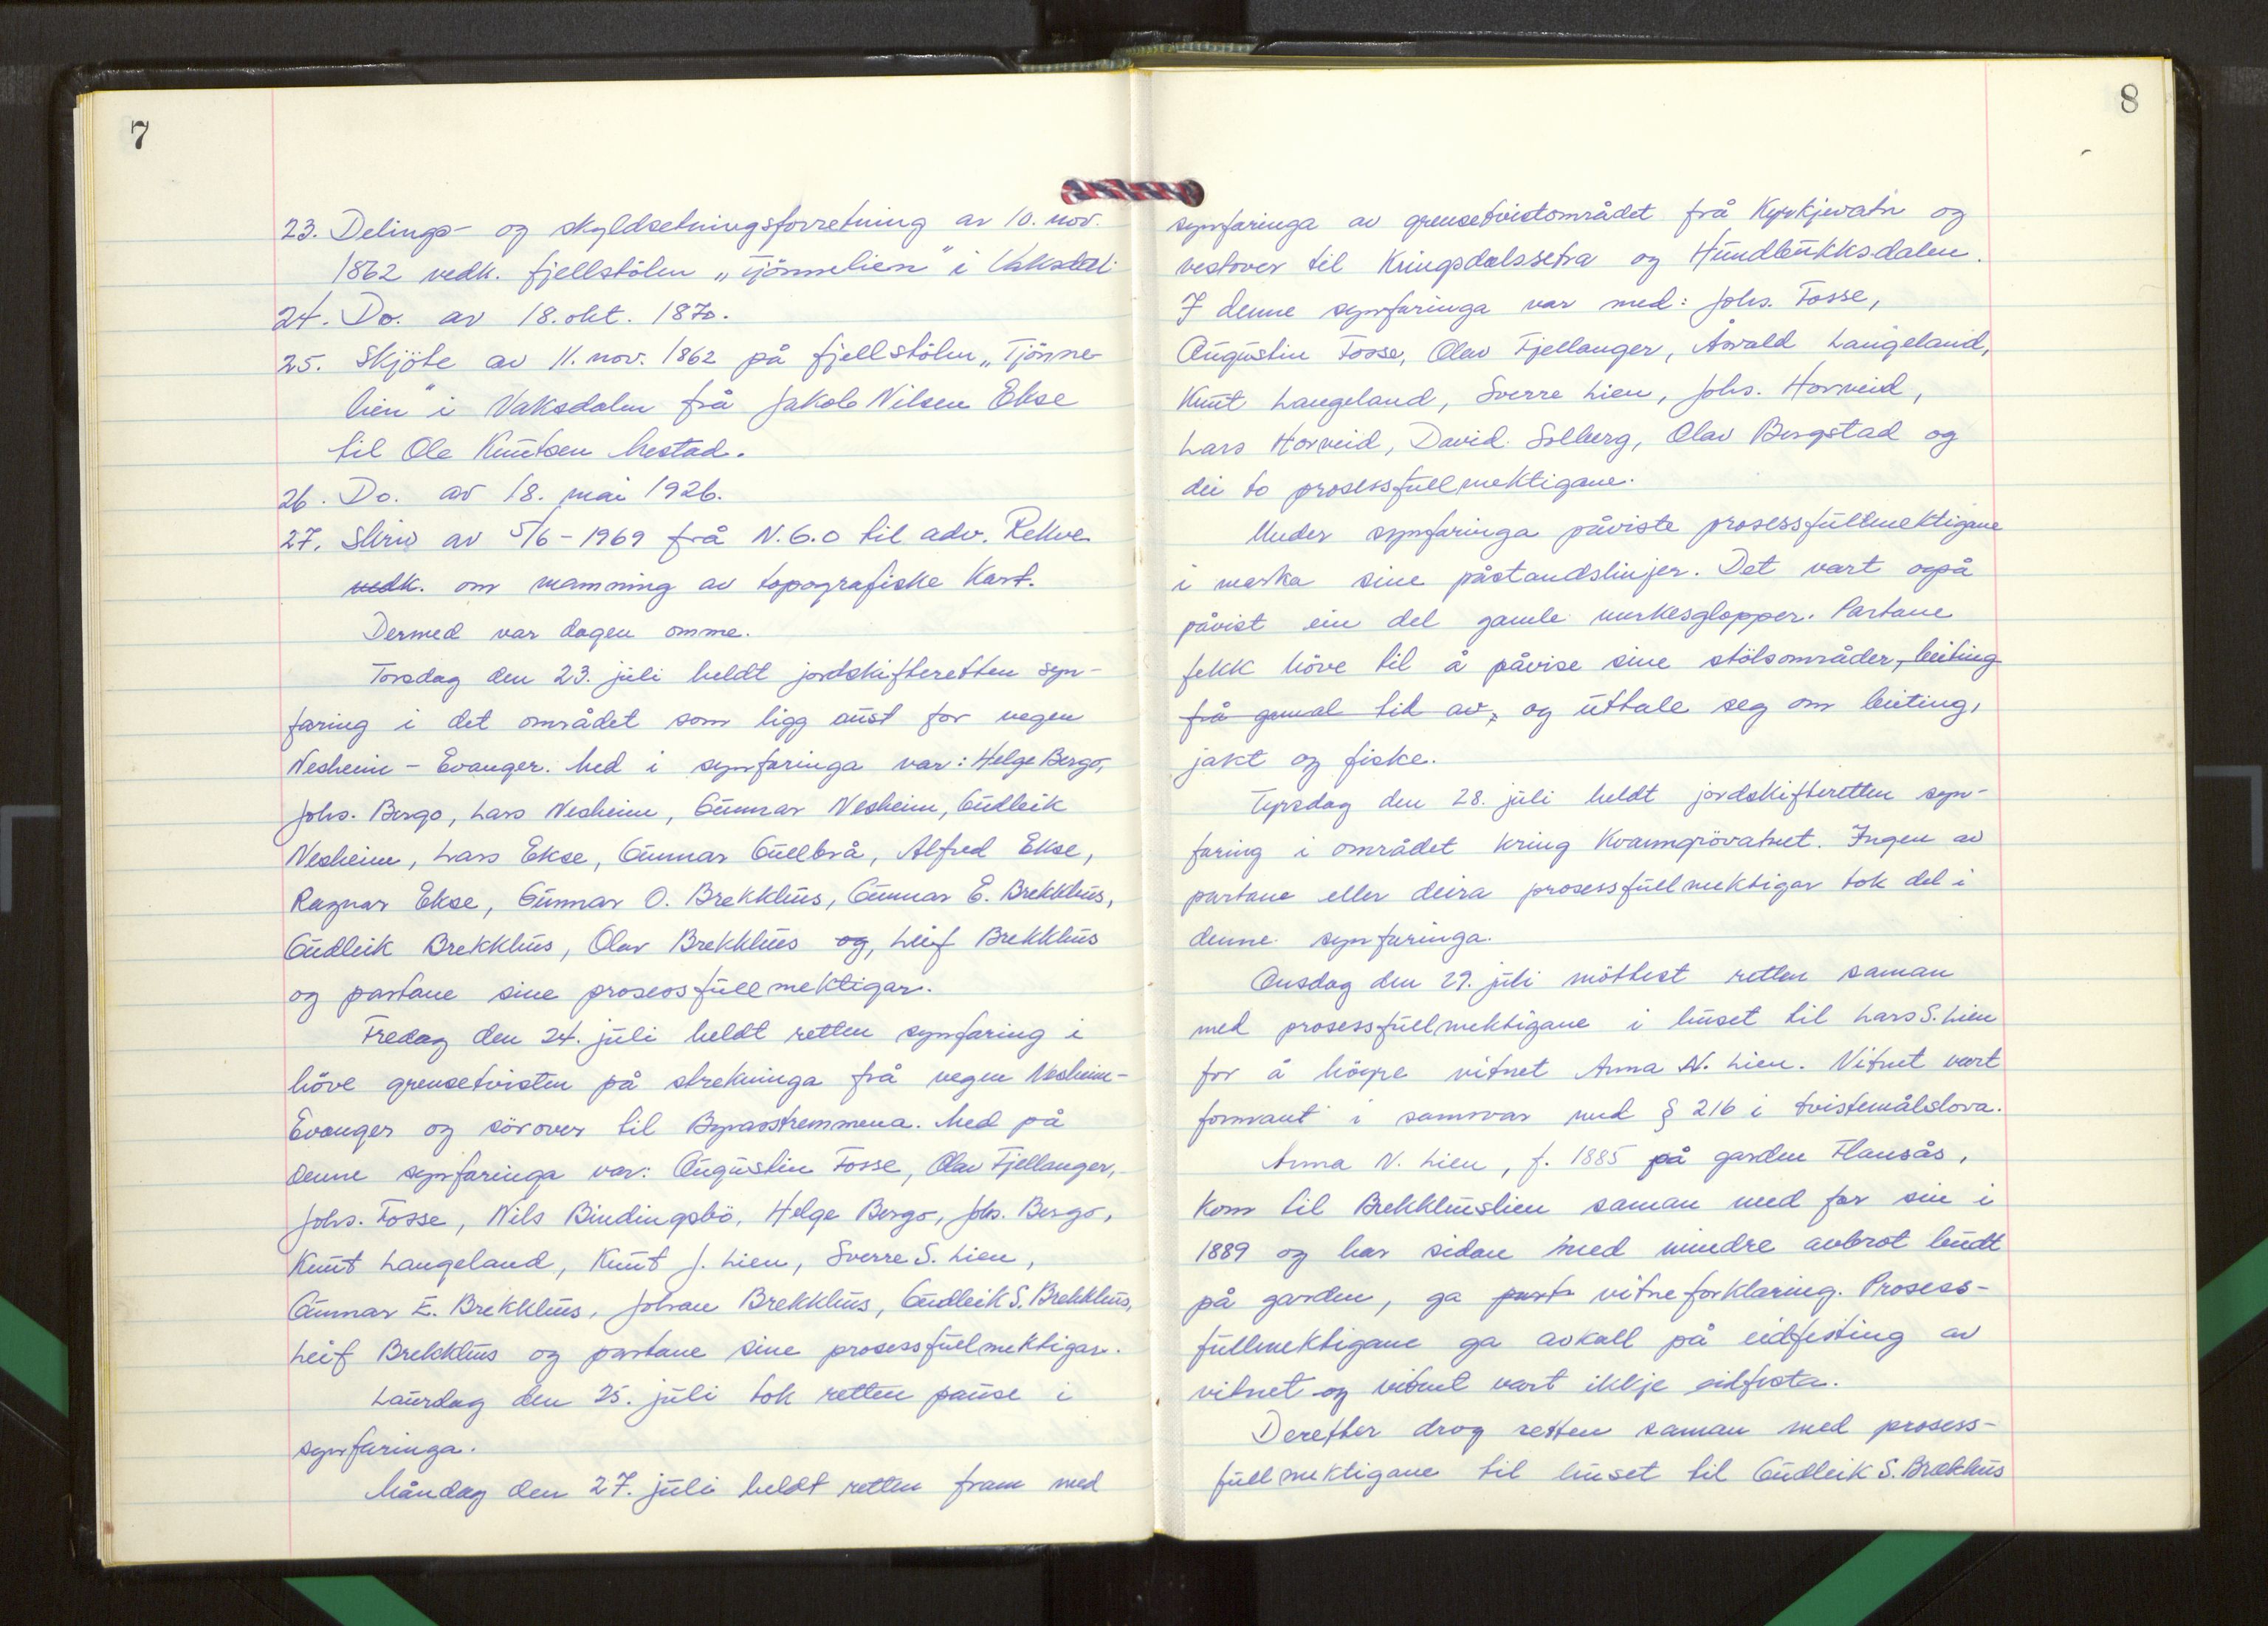 7
23. Delings- og skyldsetningsforretning av 10. nov.
1862 vedk. fjellstölen „Tjönnelien" i Vaksdal
24. Do. av 18. okt. 1870.
25. Skjöte av 11. nov. 1862 på fjellstölen „Tjönne-
lien" i Vaksdalen frå Jakob Nilsen Ekse
til Ole Knutsen Mestad.
26. Do. av 18. mai 1926.
27. Skriv av 5/6-1969 frå N.G.O til adv. Rekve
vedk. om namning av topografiske kart.
Dermed var dagen omme.
Torsdag den 23. juli heldt jordskifteretten syn-
faring i det området som ligg aust for vegen
Nesheim - Evanger. Med i synfaringa var: Helge Bergo,
Johs. Bergo, Lars Nesheim, Gunnar Nesheim, Gudleik
Nesheim, Lars Ekse, Gunnar Gullbrå, Alfred Ekse,
Ragnar Ekse, Gunnar O. Brekkhus, Gunnar E. Brekkhus,
Gudleik Brekkhus, Olav Brekkhus og, Leif Brekkhus
og partane sine prosessfullmektigar.
Fredag den 24. juli heldt retten synfaring i
höve grensetvisten på strekninga frå vegen Nesheim-
Evanger og sörover til Byrasstremmena. Med på
denne synfaringa var: Augustin Fosse, Olav Fjellanger,
Johs. Fosse, Nils Bindingsbö, Helge Bergo, Johs. Bergo,
Knut Langeland, Knut J. Lien, Sverre S. Lien,
Gunnar E. Brekkhus, Johan Brekkhus, Gudleik S. Brekkhus,
Leif Brekkhus og partane sine prosessfullmektigar.
Laurdag den 25. juli tok retten pause i
synfaringa.
Måndag den 27. juli heldt retten fram med
8
synfaringa av grensetvistområdet frå Kyrkjevatn og
vestover til Kringsdalssetra og Hundbukksdalen.
I denne synfaringa var med: Johs. Fosse,
Augustin Fosse, Olav Fjellanger, Åsvald Langeland,
Knut Langeland, Sverre Lien, Johs. Horveid,
Lars Horveid, David Solberg, Olav Bergstad og
dei to prosessfullmektigane.
Under synfaringa påviste prosessfullmektigane
i marka sine påstandslinjer. Det vart også
påvist ein del gamle merkesglopper. Partane
fekk höve til å påvise sine stölsområder, beiting
frå gamal tid av, og uttale seg om beiting,
jakt og fiske.
Tysdag den 28. juli heldt jordskifteretten syn-
faring i området kring Kvanngrövatnet. Ingen av
partane eller deira prosessfullmektigar tok del i
denne synfaringa.
Onsdag den 29. juli möttest retten saman
med prosessfullmektigane i huset til Lars S. Lien
for å höyre vitnet Anna N. Lien. Vitnet vart
formant i samsvar med § 216 i tvistemålslova.
Anna N. Lien, f. 1885 på garden Flansås,
kom til Brekkhuslien saman med far sin i
1889 og har sidan med mindre avbrot budt
på garden, ga vitneforklaring. Prosess-
fullmektigane ga avkall på eidfesting av
vitnet og vitnet vart ikkje eidfesta.
Deretter drog retten saman med prosess-
fullmektigane til huset til Gudleik S. Brekkhus